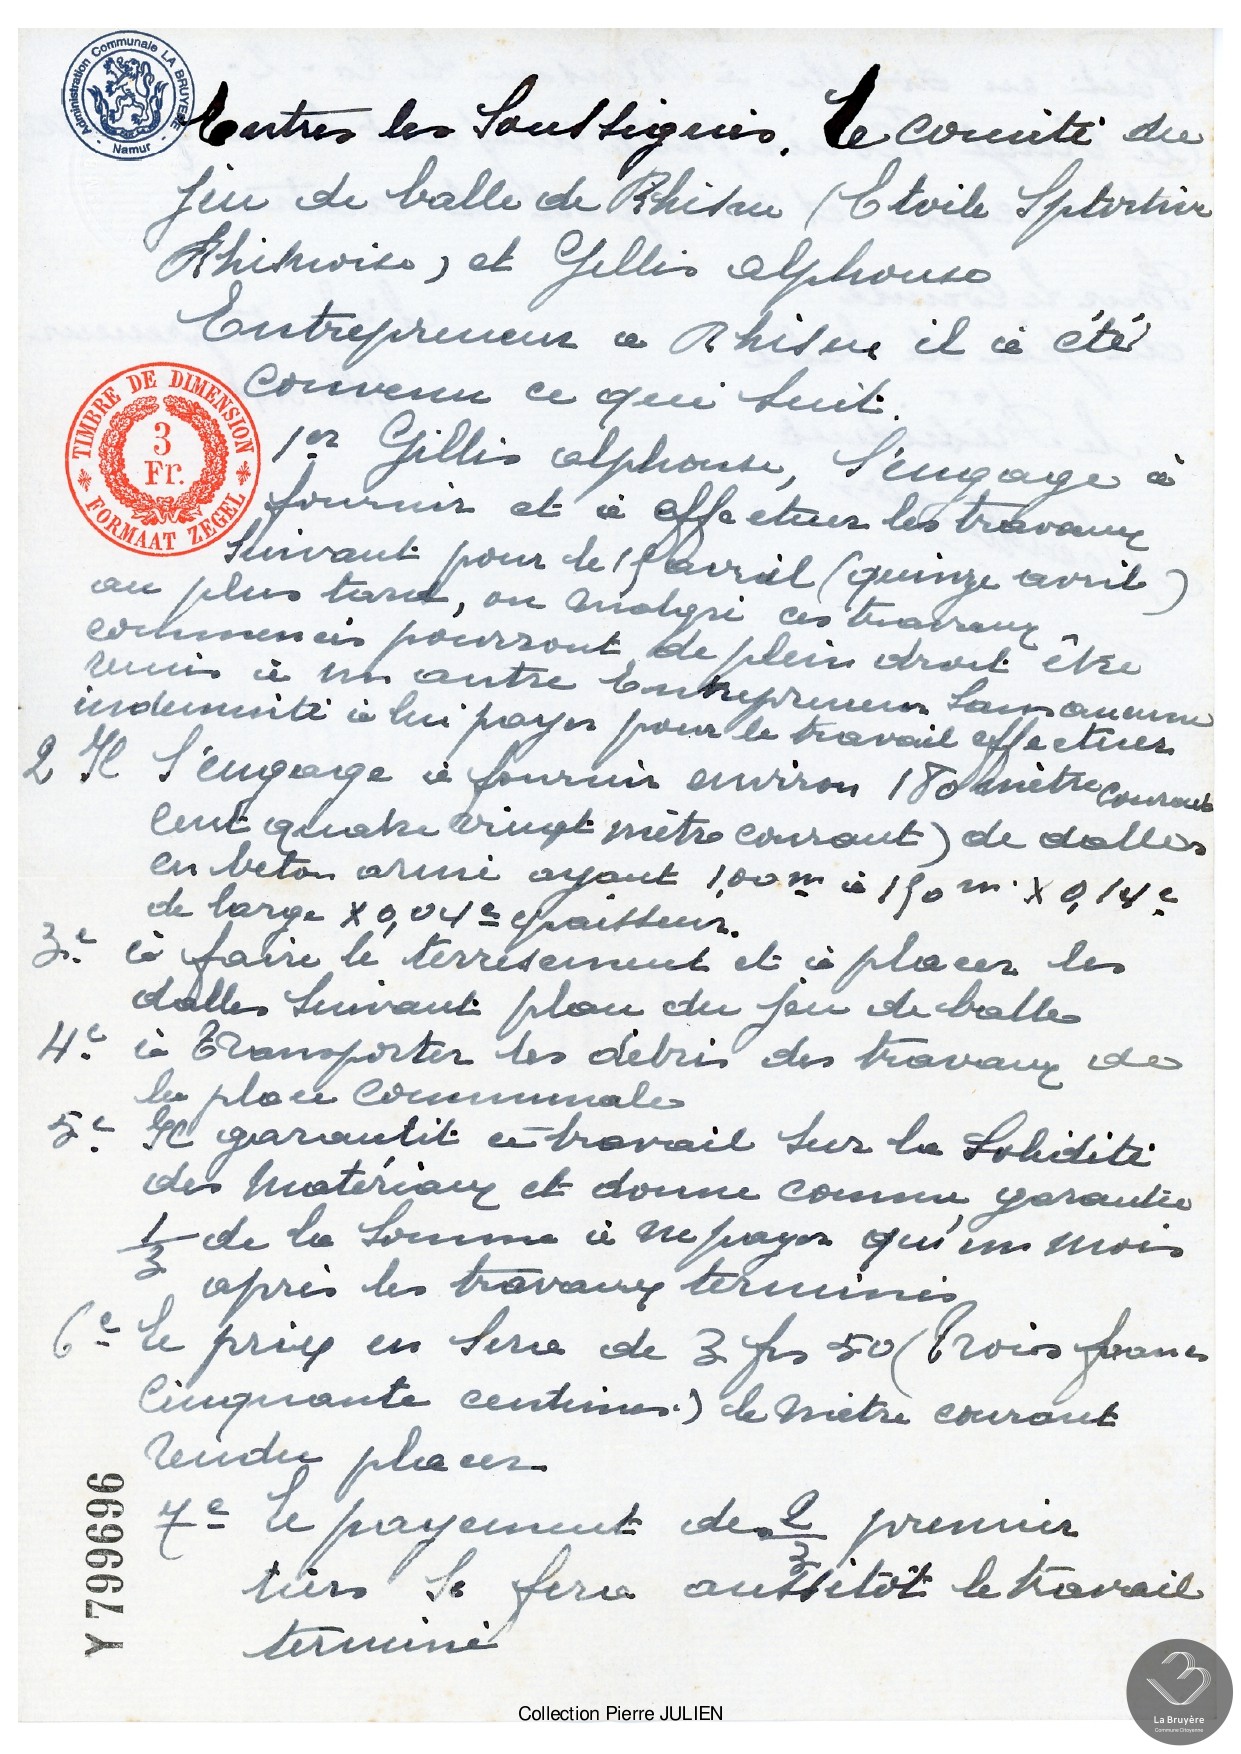 Administration Communale LA BRUYERE - Namur -
Entres les Soussignés, Le comité du
Jeu de balle de Rhisne (Etoile Sportive
Rhisnoise) et Gillis alphonse
Entrepreneur a Rhisne il à été
convenu ce qui suit.
TIMBRE DE DIMENSION
3
Fr.
FORMAAT ZEGEL
1er Gillis alphonse, s'engage à
fournir et à effectuer les travaux
Suivant pour le 15 avril (quinze avril)
au plus tard, ou malgré ces travaux
commencés pourront de plein droit être
remis à un autre Entrepreneur Sans aucune
indemnité à lui payer pour le travail effectuer
2 Il s'engage à fournir environ 180 mètre courant
cent quatre vingt mètre courant) de dalles
en beton armé ayant 1,00 m à 150 m. x 0,14 c
de large x 0,04 c epaisseur.
3e à faire le terresement et à placer les
dalles Suivant plan du jeu de balle
4e à Transporter les débris des travaux de
la place communale
5e Il garantit ce travail sur la Solidité
des Matériaux et donne comme garantie
1/3 de la Somme à ne payer qu'un mois
après les travaux terminés
6e Le prix en sera de 3 frs 50 (Trois francs
Cinquante centimes.) le mètre courant
rendu placer
7e Le payement des 2/3 premier
tiers se fera aussitôt le travail
terminé
Y 799696
Collection Pierre JULIEN
La Bruyère
Commune Citoyenne